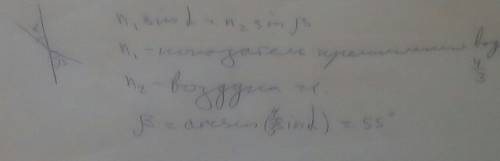 α
β
n₁ sin α = n₂ sin β
n₁ - показатель преломления воз
4
3
n₂ - воздуха
β = arcsin(4/3 sin α) = 55°